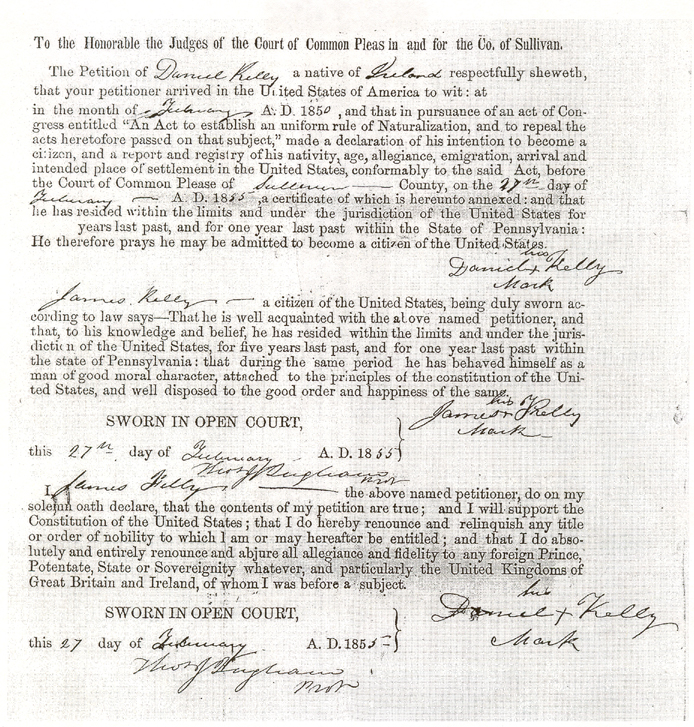 To the Honorable the Judges of the Court of Common Pleas in and for the Co. of Sullivan.
The Petition of Daniel Kelly a native of Ireland respectfully sheweth,
that your petitioner arrived in the United States of America to wit: at
in the month of February A. D. 1850, and that in pursuance of an act of Con-
gress entitled "An Act to establish an uniform rule of Naturalization, and to repeal the
acts heretofore passed on that subject," made a declaration of his intention to become a
citizen, and a report and registry of his nativity, age, allegiance, emigration, arrival and
intended place of settlement in the United States, conformably to the said Act, before
the Court of Common Please of Sullivan County, on the 27th day of
February A. D. 1855, a certificate of which is hereunto annexed: and that
he has resided within the limits and under the jurisdiction of the United States for
years last past, and for one year last past within the State of Pennsylvania:
He therefore prays he may be admitted to become a citizen of the United States.
his
Daniel x Kelly
Mark
James Kelly — a citizen of the United States, being duly sworn ac-
cording to law says—That he is well acquainted with the above named petitioner, and
that, to his knowledge and belief, he has resided within the limits and under the juris-
diction of the United States, for five years last past, and for one year last past within
the state of Pennsylvania: that during the same period he has behaved himself as a
man of good moral character, attached to the principles of the constitution of the Uni-
ted States, and well disposed to the good order and happiness of the same.
his
James x Kelly
Mark
SWORN IN OPEN COURT,
this 27th day of February A. D. 1855
Thos J Ingham
Prot
I James Kelly the above named petitioner, do on my
solemn oath declare, that the contents of my petition are true; and I will support the
Constitution of the United States; that I do hereby renounce and relinquish any title
or order of nobility to which I am or may hereafter be entitled; and that I do abso-
lutely and entirely renounce and abjure all allegiance and fidelity to any foreign Prince,
Potentate, State or Sovereignity whatever, and particularly the United Kingdoms of
Great Britain and Ireland, of whom I was before a subject.
his
Daniel x Kelly
Mark
SWORN IN OPEN COURT,
this 27 day of February A. D. 1855
Thos J Ingham
Prot